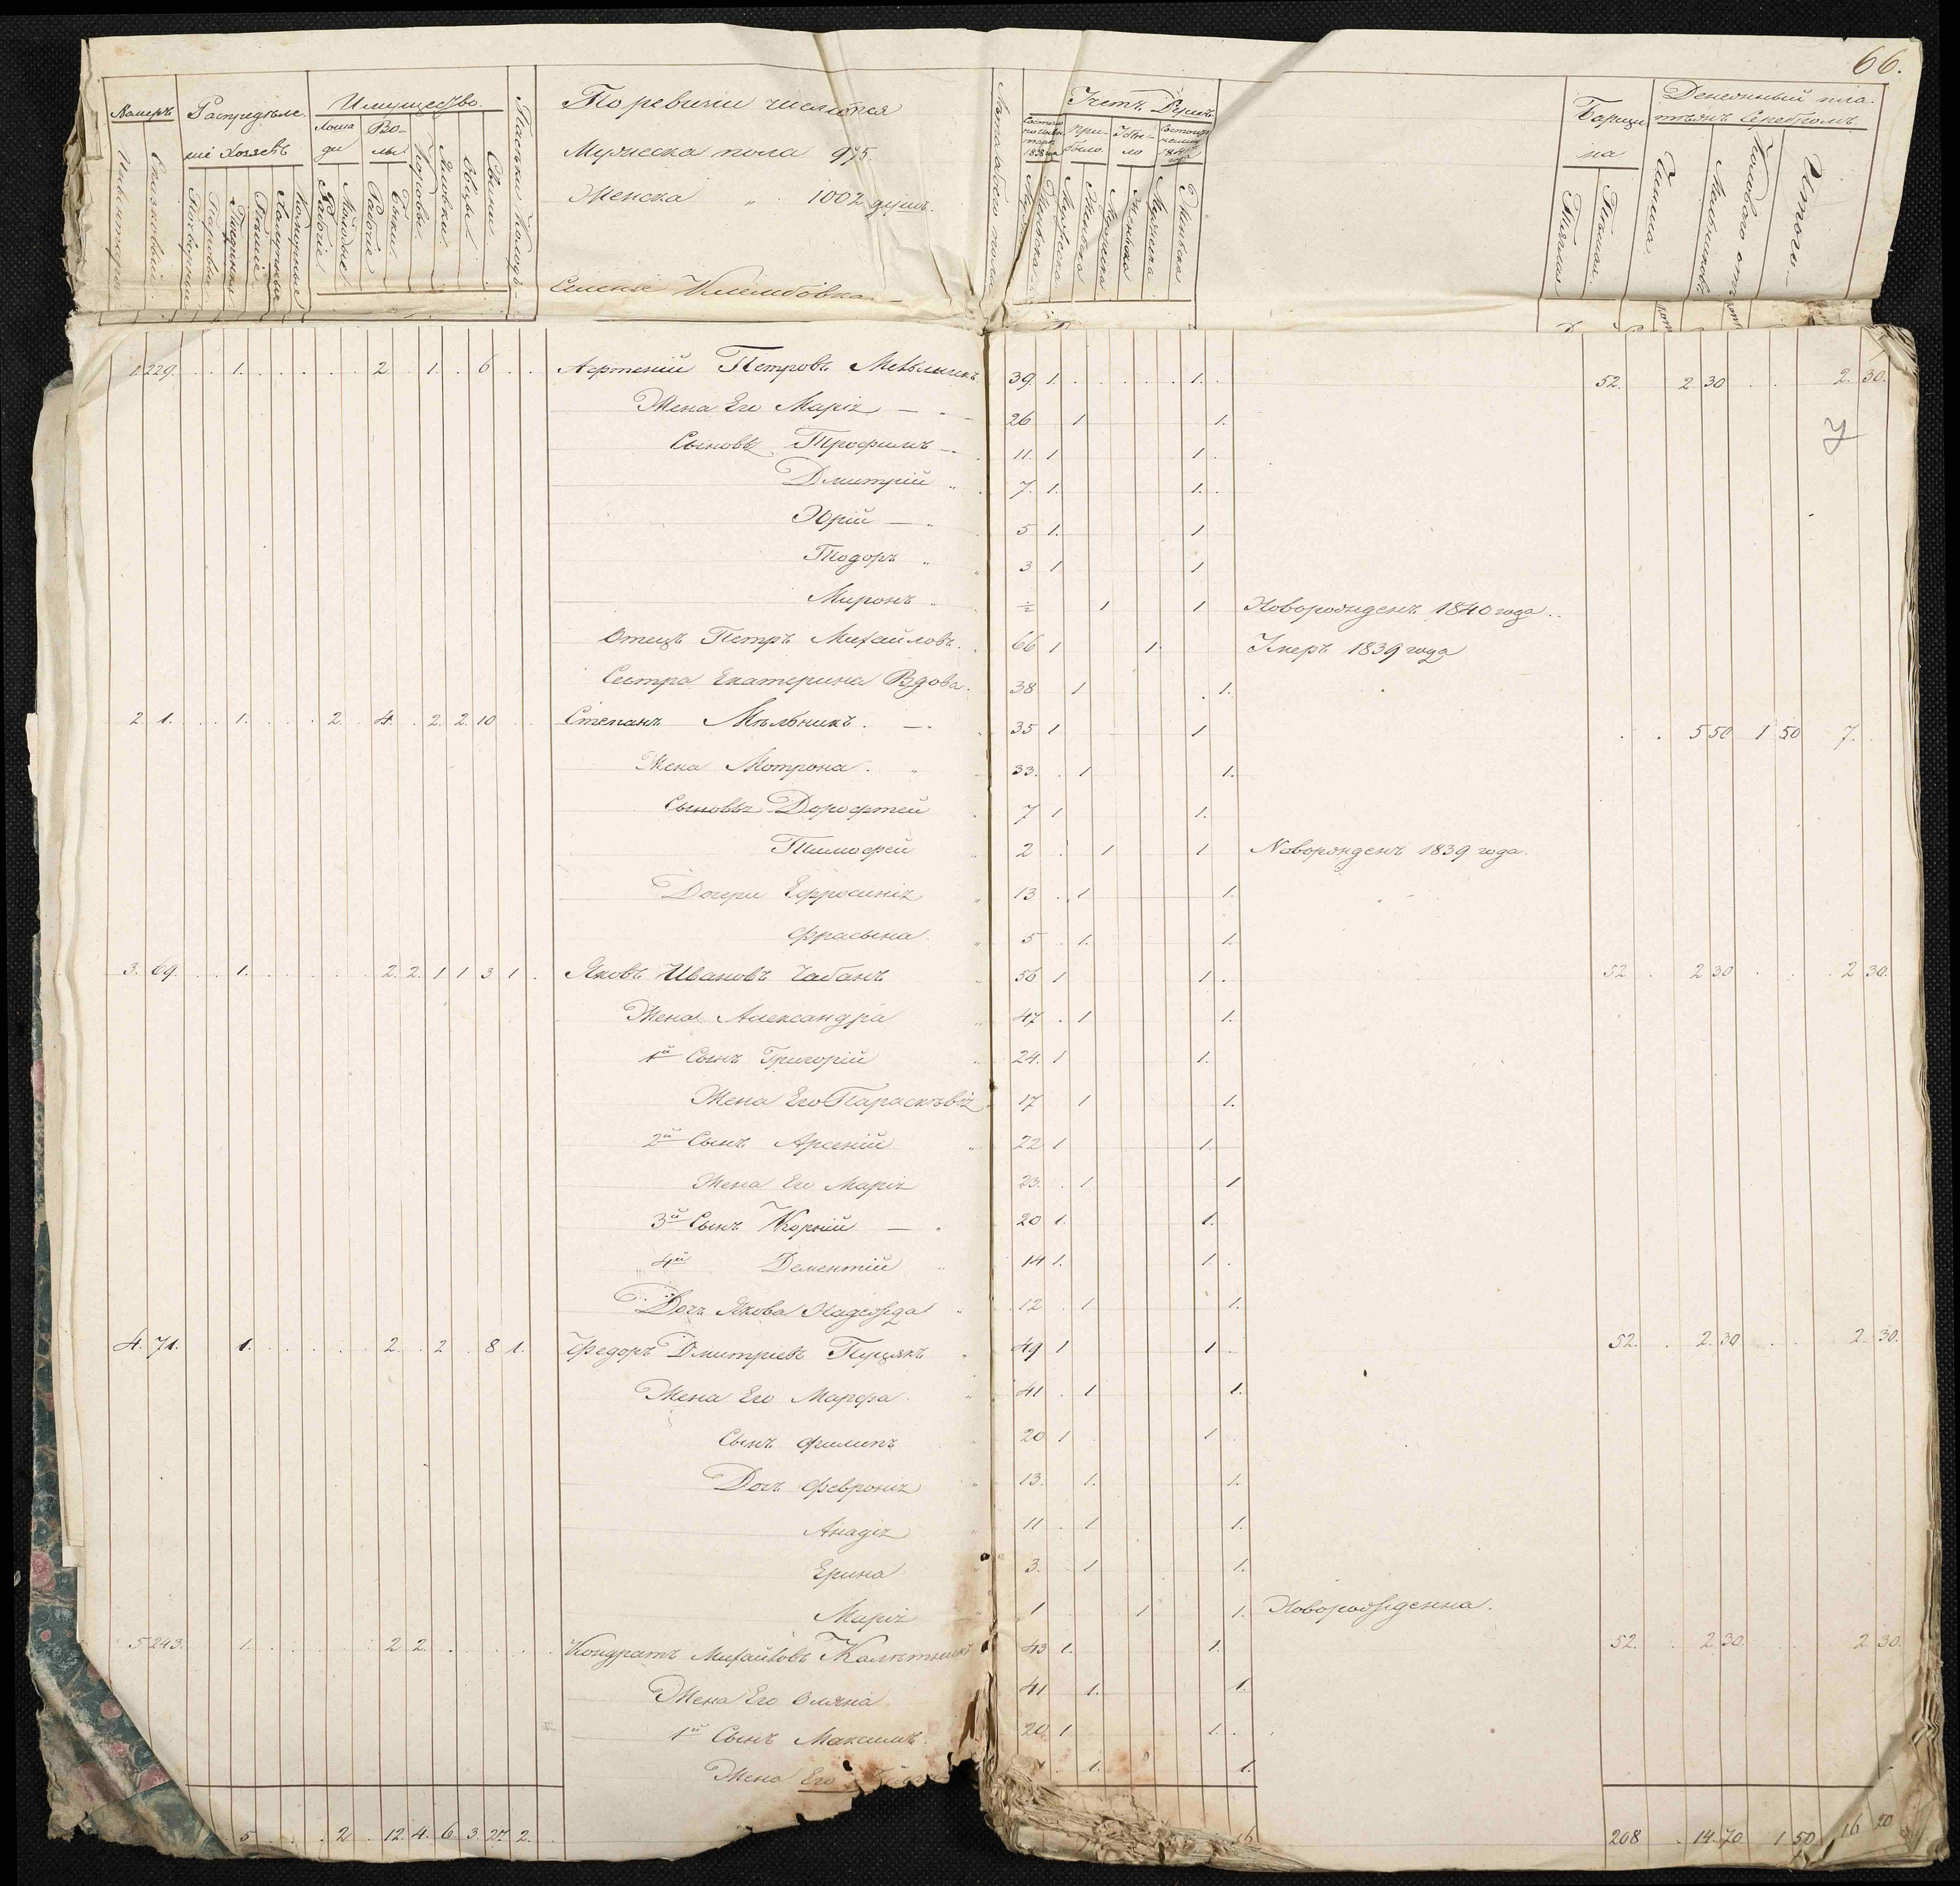 66.
Номеръ
Инвентаря
Сказковый
Распредѣле-
ніе Хозяевъ
Имущество.
Лоша
ди
Во-
лы
Рабочіе
Молодые
Рабочіе
Быки
Коровы
Яловки
Овцы
Свиньи
По ревизіи числится
Мужеска пола 975.
Женска " 1002 душъ.
Селеніе Клембовка
Лѣта обоего пола
Учетъ Душъ
при-
было
убы-
ло
Мужеска
Женска
Мужеска
Женска
Мужеска
Женска
Мужеска
Женска
Барщи
на
Тяглая
Пѣшая
Денежный пла-
тежъ Серебромъ.
Чинша
Итого
1 229. 1. 2 1. 6 Артеній Петровъ Мельникъ 39 1. 1. 52. 2 30 2. 30.
Жена Его Марія 26 1 1.
Сыновья Трофимъ 11. 1 1.
Дмитрій 7. 1. 1.
Юрій 5 1. 1
Тодоръ 3 1 1
Миронъ ½ 1 1 Новорожденъ 1840 года.
Отецъ Петръ Михайловъ 66 1 1. Умеръ 1839 года
Сестра Екатерина Вдова. 38 1 1.
2. 1. 1. 2. 4. 2. 2. 10 Степанъ Мѣльникъ. 35 1 1 5 50 1 50 7.
Жена Мотрона. 33. 1 1.
Сыновья Дорофтей 7 1 1.
Тимофей 2 1 1 Новорожденъ 1839 года.
Дочери Ефросинія 13 1 1.
Фрасына. 5 1. 1.
3. 69. 1. 2. 2. 1 1 3 1 Яковъ Ивановъ Чабанъ 56 1 1. 52 2 30 2 30.
Жена Александра 47 1 1.
1й Сынъ Григорій 24. 1 1.
Жена Его Параскѣвія 17 1 1.
2й Сынъ Арсеній 22 1 1.
Жена Его Марія 23. 1 1
3й Сынъ Корній 20 1. 1.
4й Дементій 14 1. 1.
Дочъ Якова Надежда 12 1 1.
4. 71. 1. 2. 2 8 1. Федоръ Дмитріевъ Пуцякъ 49 1 1 52. 2. 30 2. 30.
Жена Его Марфа. 41 1 1.
Сынъ Филипъ 20 1 1
Дочъ Февронія 13. 1. 1.
Анадія 11 1 1.
Ерина 3. 1 1.
Марія 1 1 1. Новорожденна.
5 243. 1. 2 2. Кондратъ Михайловъ 43 1. 1. 52. 2 30. 2. 30.
Жена Его Оляна 41 1. 1.
1й Сынъ Максимъ. 20 1 1.
Жена Его 1. 1.
5 2 12. 4. 6 3. 27. 2. 16 208 14. 70 1 50 16 20